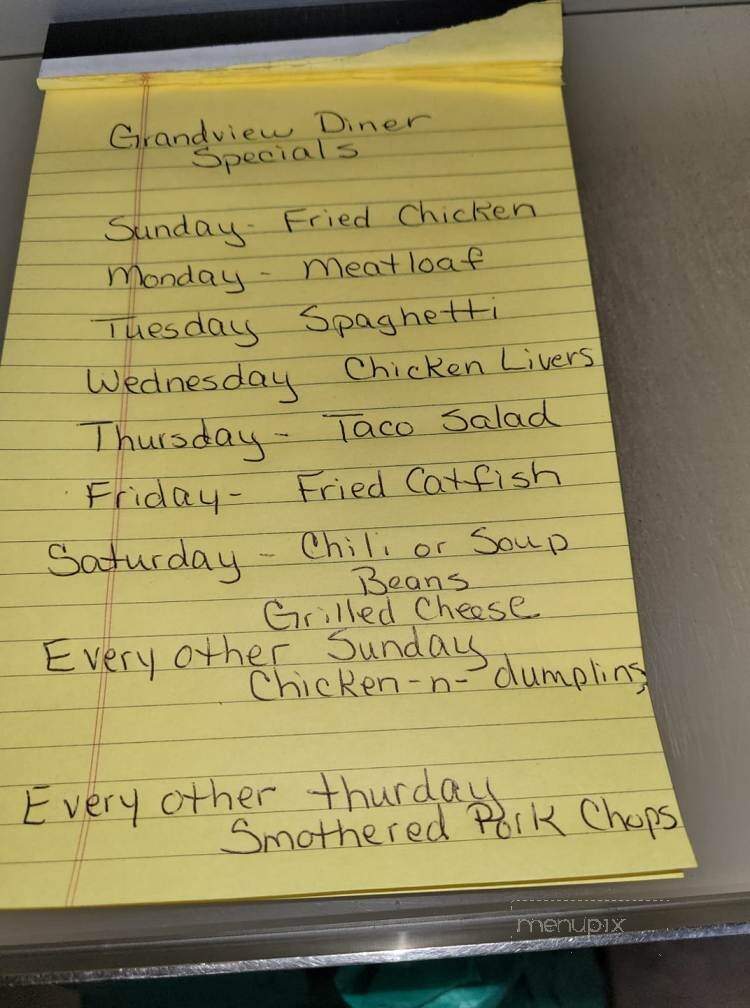 Grandview Diner
Specials
Sunday- Fried Chicken
Monday - Meatloaf
Tuesday Spaghetti
Wednesday Chicken Livers
Thursday- Taco Salad
Friday- Fried Catfish
Saturday - Chili or Soup
Beans
Grilled Cheese
Every other Sunday
Chicken-n- dumplins
Every other thurday
Smothered Pork Chops
menupix